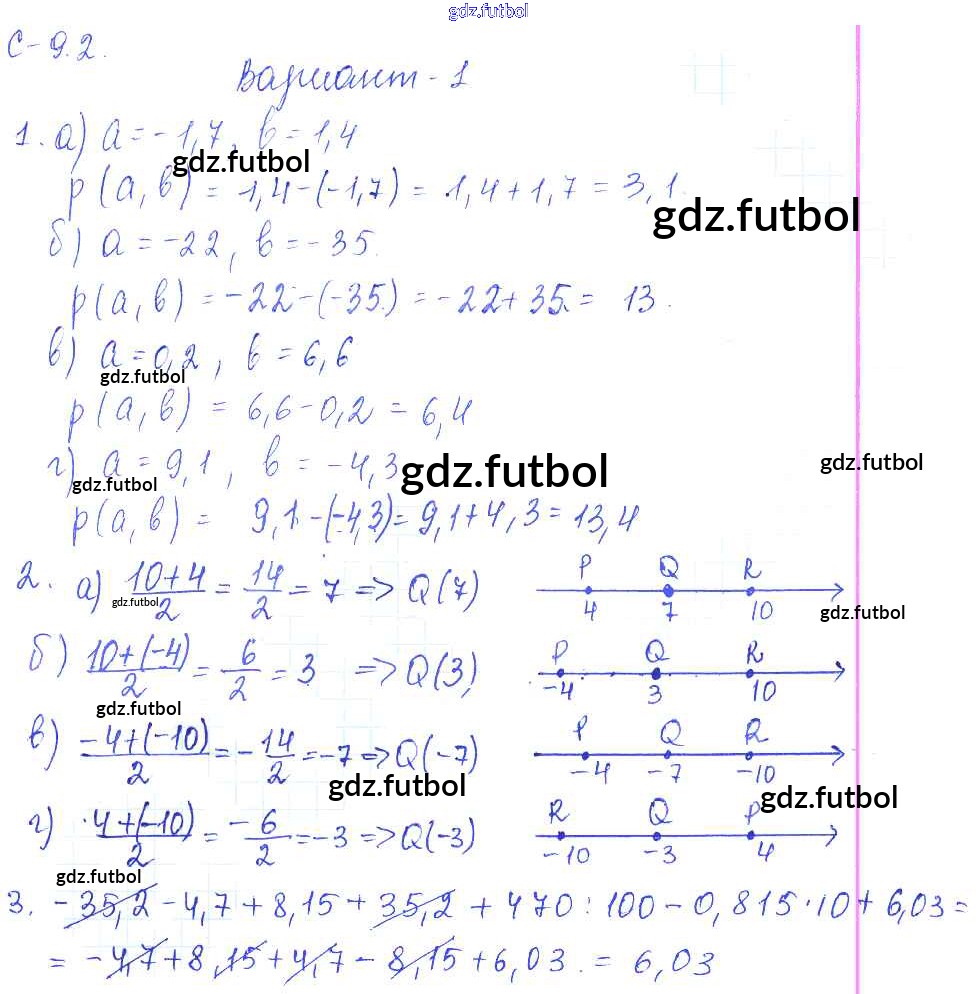 gdz.futbol
С-9.2.
Вариант-1
1. а) a = -1,7, b = 1,4
gdz.futbol
p(a, b) = 1,4-(-1,7) = 1,4+1,7 = 3,1.
gdz.futbol
б) a = -22, b = -35.
p(a, b) = -22-(-35) = -22+35 = 13.
в) a = 0,2, b = 6,6
gdz.futbol
p(a, b) = 6,6-0,2 = 6,4
г) a = 9,1, b = -4,3
gdz.futbol gdz.futbol gdz.futbol
p(a, b) = 9,1-(-4,3) = 9,1+4,3 = 13,4
2. а) (10+4)/2 = 14/2 = 7 => Q(7) P Q R
gdz.futbol 4 7 10 gdz.futbol
б) (10+(-4))/2 = 6/2 = 3 => Q(3) P Q R
-4 3 10
gdz.futbol
в) (-4+(-10))/2 = -14/2 = -7 => Q(-7) P Q R
-4 -7 -10
gdz.futbol gdz.futbol
г) (4+(-10))/2 = -6/2 = -3 => Q(-3) R Q P
-10 -3 4
gdz.futbol
3. -35,2 - 4,7 + 8,15 + 35,2 + 470 : 100 - 0,815 · 10 + 6,03 =
= -4,7 + 8,15 + 4,7 - 8,15 + 6,03 = 6,03